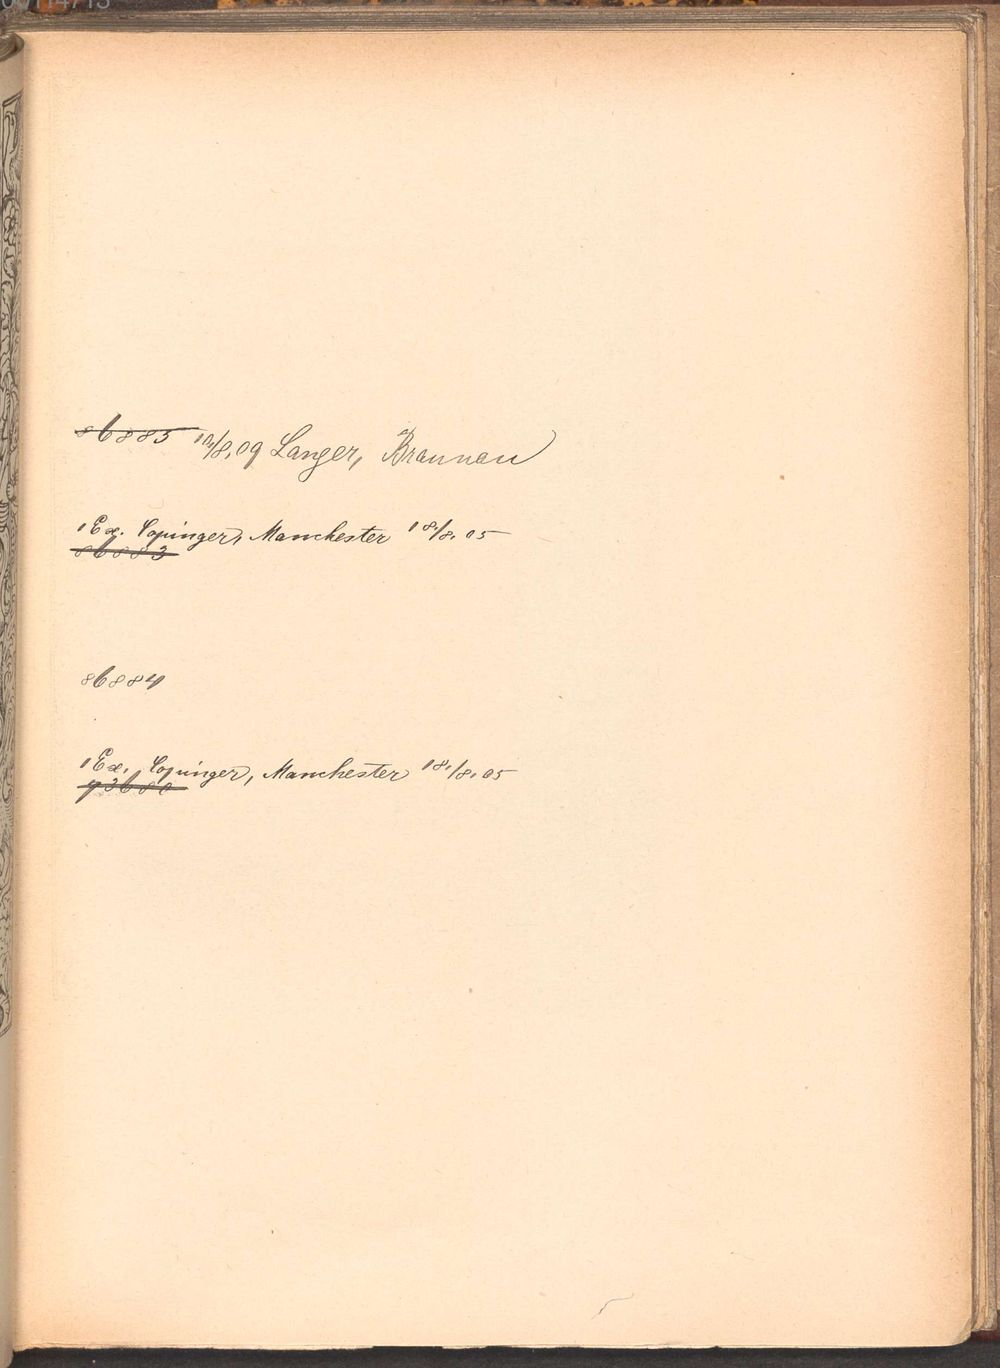 86885 10/8.09 Langer, Braunau
1 Ex. Copinger, Manchester 18./8.05
86883
86884
1 Ex. Copinger, Manchester 18./8.05
73680